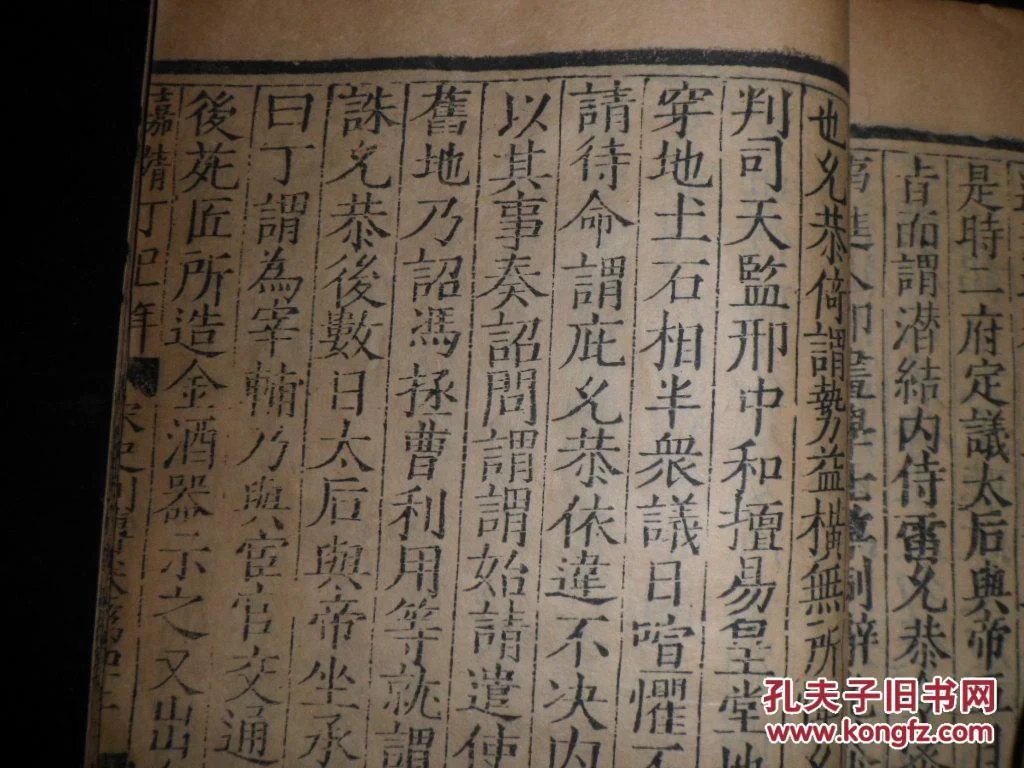 是時二府定議太后與帝
皆面謂潜結内侍雷允恭
也允恭倚謂勢益横無所
判司天監邢中和擅易皇堂地
穿地土石相半衆議日喧懼不
請待命謂庇允恭依違不决内
以其事奏詔問謂謂始請遣使
舊地乃詔馮拯曹利用等就謂
誅允恭後數日太后與帝坐承
曰丁謂為宰輔乃與宦官交通
後苑匠所造金酒器示之又出
嘉靖丁巳年 宋史列傳
孔夫子旧书网
www.kongfz.com